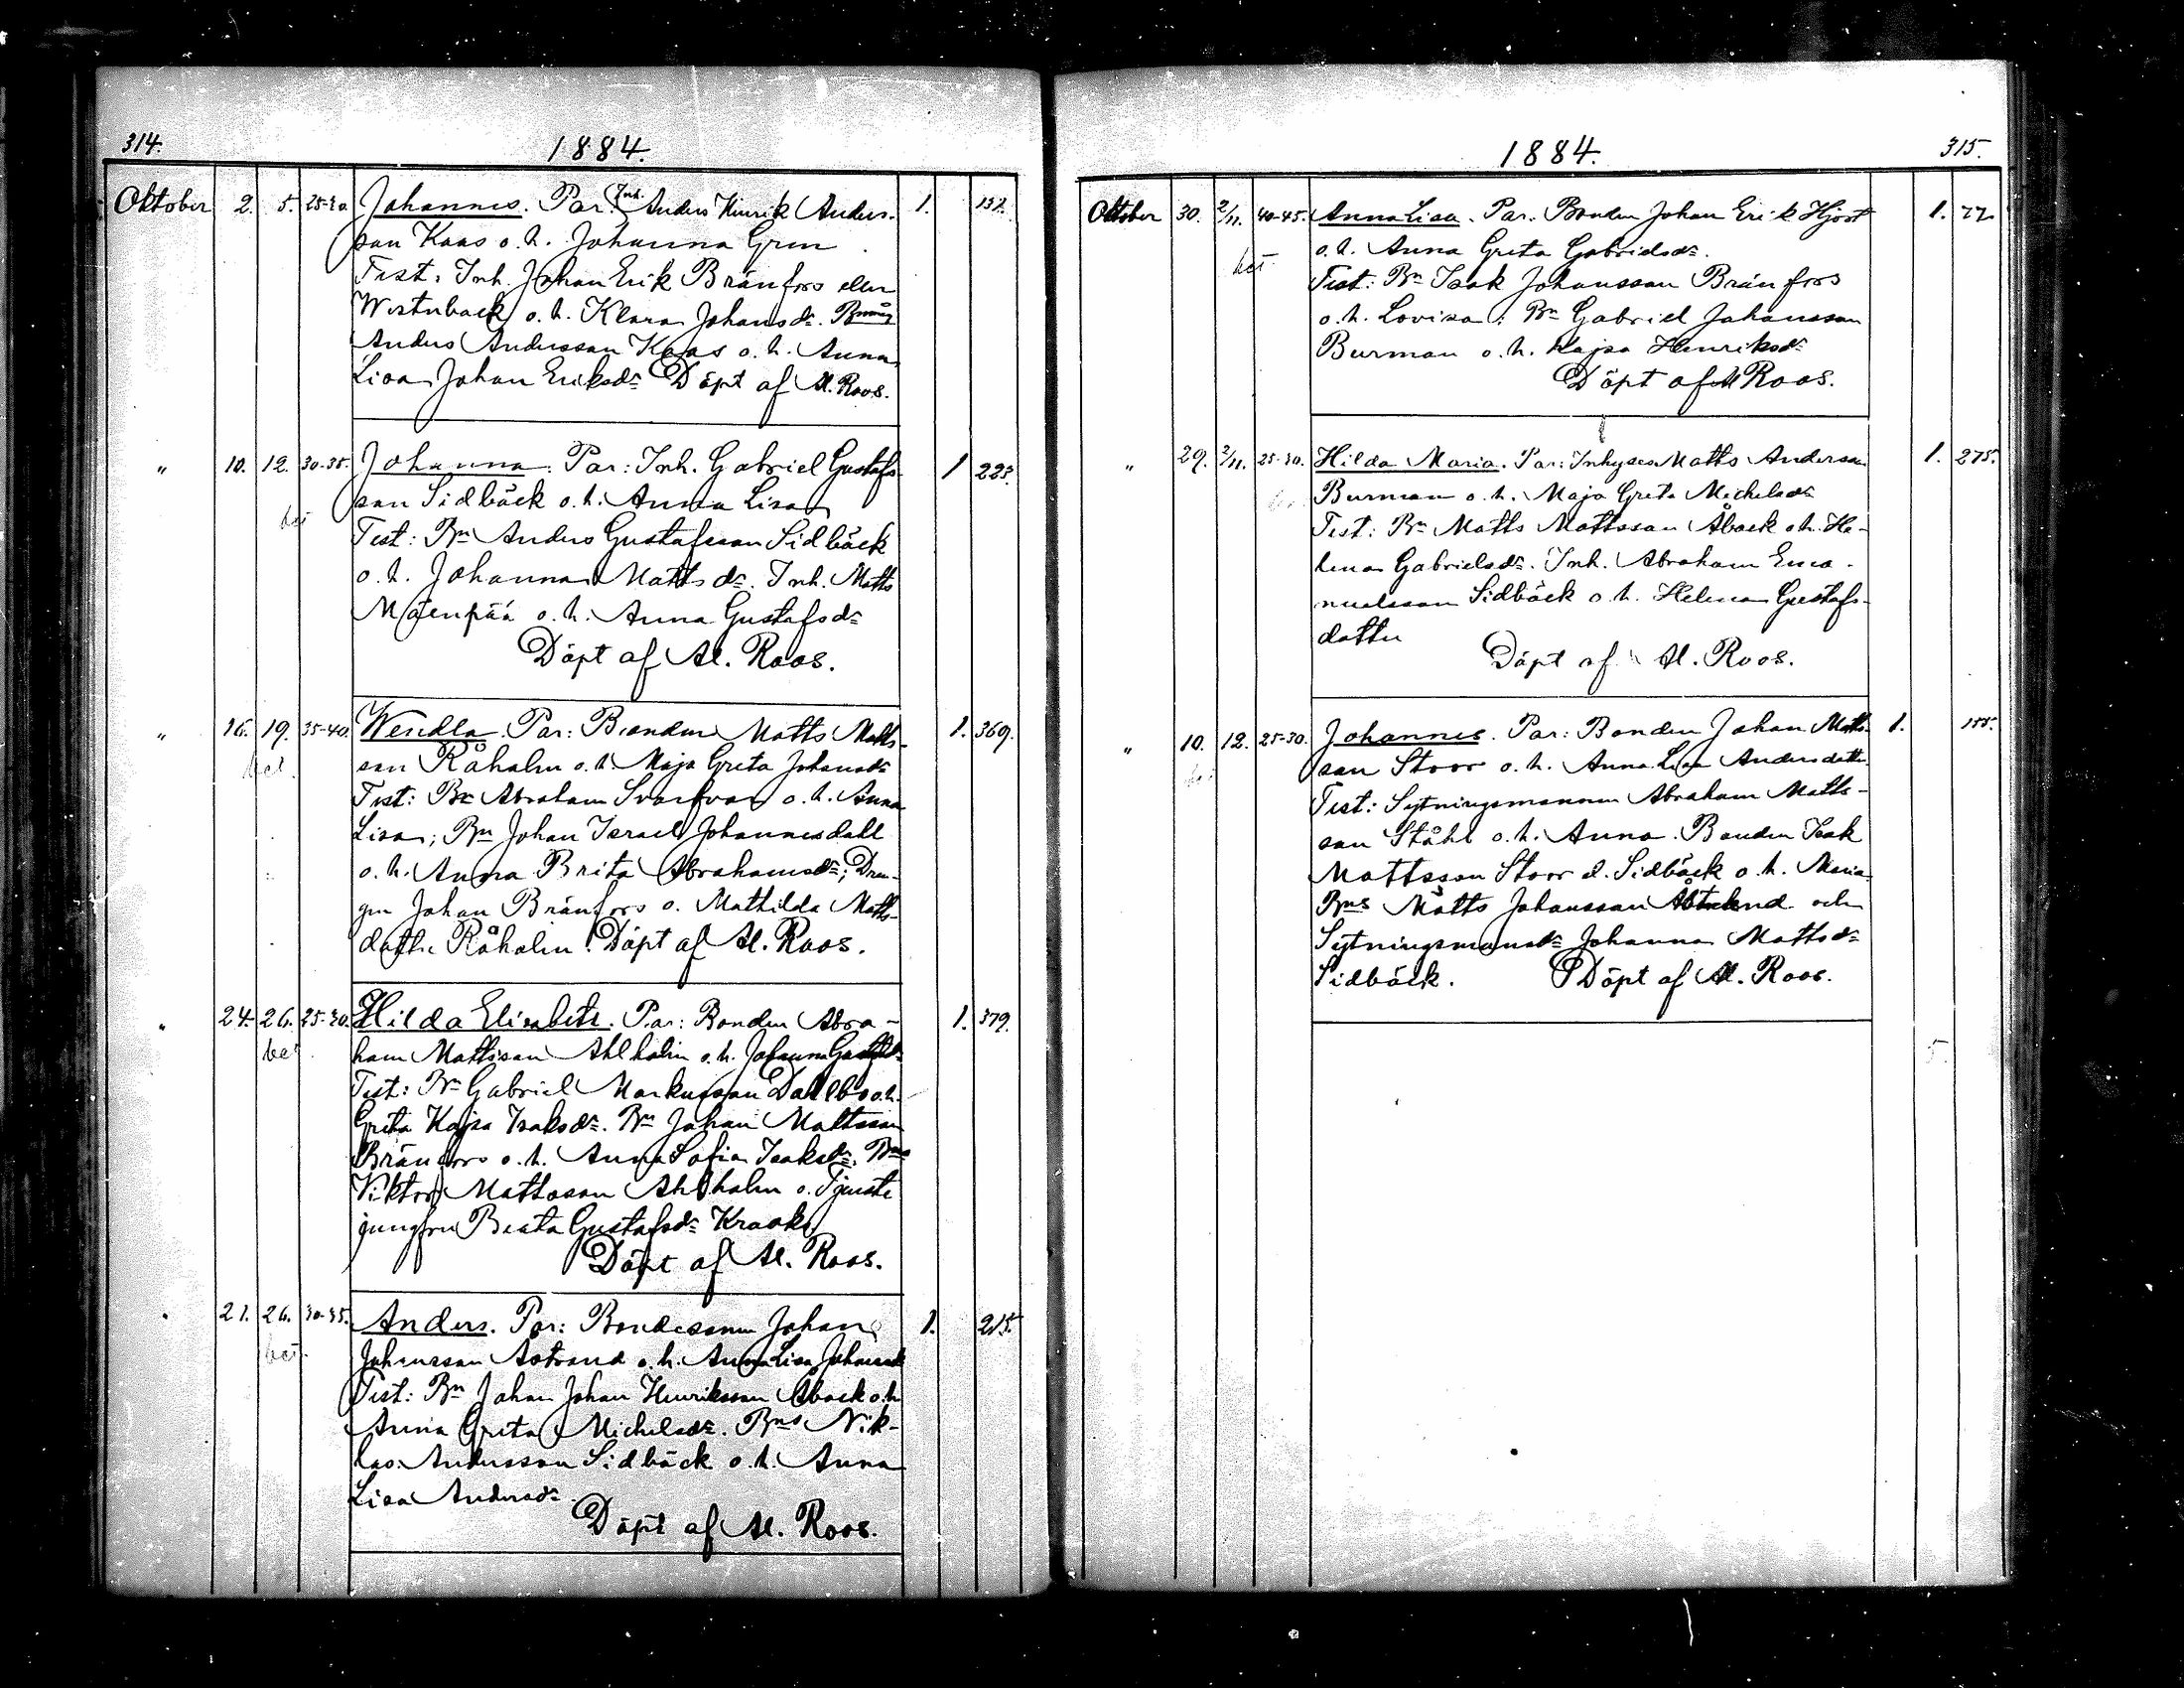 314.
1884.
Oktober 2. 5. 25-30 Johannes. Par: Inh. Anders Henrik Anders- 1. 152.
son Kaas o. h. Johanna Gren
Test: Inh. Johan Erik Brännfors eller
Westerback o. h. Klara Johansdr.
Anders Andersson Kaas o. h. Anna
Lisa Johan Eriksdr. Döpt af Al. Roos.
" 10. 12. 30-35. Johanna. Par: Inh. Gabriel Gustafs- 1 223.
son Sidbäck o. h. Anna Lisa
bet
Test: Bn Anders Gustafsson Sidbäck
o. h. Johanna Mattsdr. Inh. Matts
Mäenpää o. h. Anna Gustafsdr
Döpt af Al. Roos.
" 16. 19. 35-40. Wendla. Par: Bonden Matts Matts- 1. 369.
bet. son Råholm o. h. Maja Greta Johansdr
Test: Bn Abraham Svarfvar o. h. Anna
Lisa; Bn Johan Israel Johannesdahl
o. h. Anna Brita Abrahamsdr; Dren-
gen Johan Brännfors o. Mathilda Matts-
dotter Råholm. Döpt af Al. Roos.
" 24. 26. 25-30. Hilda Elisabeth. Par: Bonden Abra- 1. 379.
bet. ham Mattsson Ahlholm o. h. Johanna Gustafsdr
Test: Bn Gabriel Markusson Dahlbo o. h.
Greta Kajsa Isaksdr. Bn Johan Mattsson
Brännfors o. h. Anna Sofia Isaksdr. Bns
Viktor Mattsson Ahlholm o. Tjenste
jungfru Beata Gustafsdr Kraak
Döpt af Al. Roos.
" 21. 26. 30-35. Anders. Par: Bondesonen Johan 1. 215.
bet. Johansson Åstrand o. h. Anna Lisa Johansdr
Test: Bn Johan Johan Henriksson Åback o. h.
Anna Greta Michelsdr. Bns Nik-
las Andersson Sidbäck o. h. Anna
Lisa Andersdr.
Döpt af Al. Roos.
1884.
315.
Oktober 30. 2/11. 40-45. Anna Lisa. Par: Bonden Johan Erik Hjort 1. 77.
bet o. h. Anna Greta Gabrielsdr.
Test: Bn Isak Johansson Brännfors
o. h. Lovisa; Bn Gabriel Johansson
Burman o. h. Kajsa Henriksdr
Döpt af Al Roos.
" 29. 2/11. 25-30. Hilda Maria. Par: Inhyses Matts Andersson 1. 275.
Burman o. h. Maja Greta Michelsdr
Test: Bn Matts Mattsson Åback o. h. He-
lena Gabrielsdr. Inh. Abraham Ema-
nuelsson Sidbäck o. h. Helena Gustafs-
dotter
Döpt af Al. Roos.
" 10. 12. 25-30. Johannes. Par: Bonden Johan Matts- 1. 155.
son Stoor o. h. Anna Lisa Andersdotter
Test: Sytningsmannen Abraham Matts-
son Ståhl o. h. Anna. Bonden Isak
Mattsson Stoor el. Sidbäck o. h. Maria
Bns Matts Johansson Åstrand och
Sytningsmansdr Johanna Mattsdr
Sidbäck. Döpt af Al. Roos.
5.